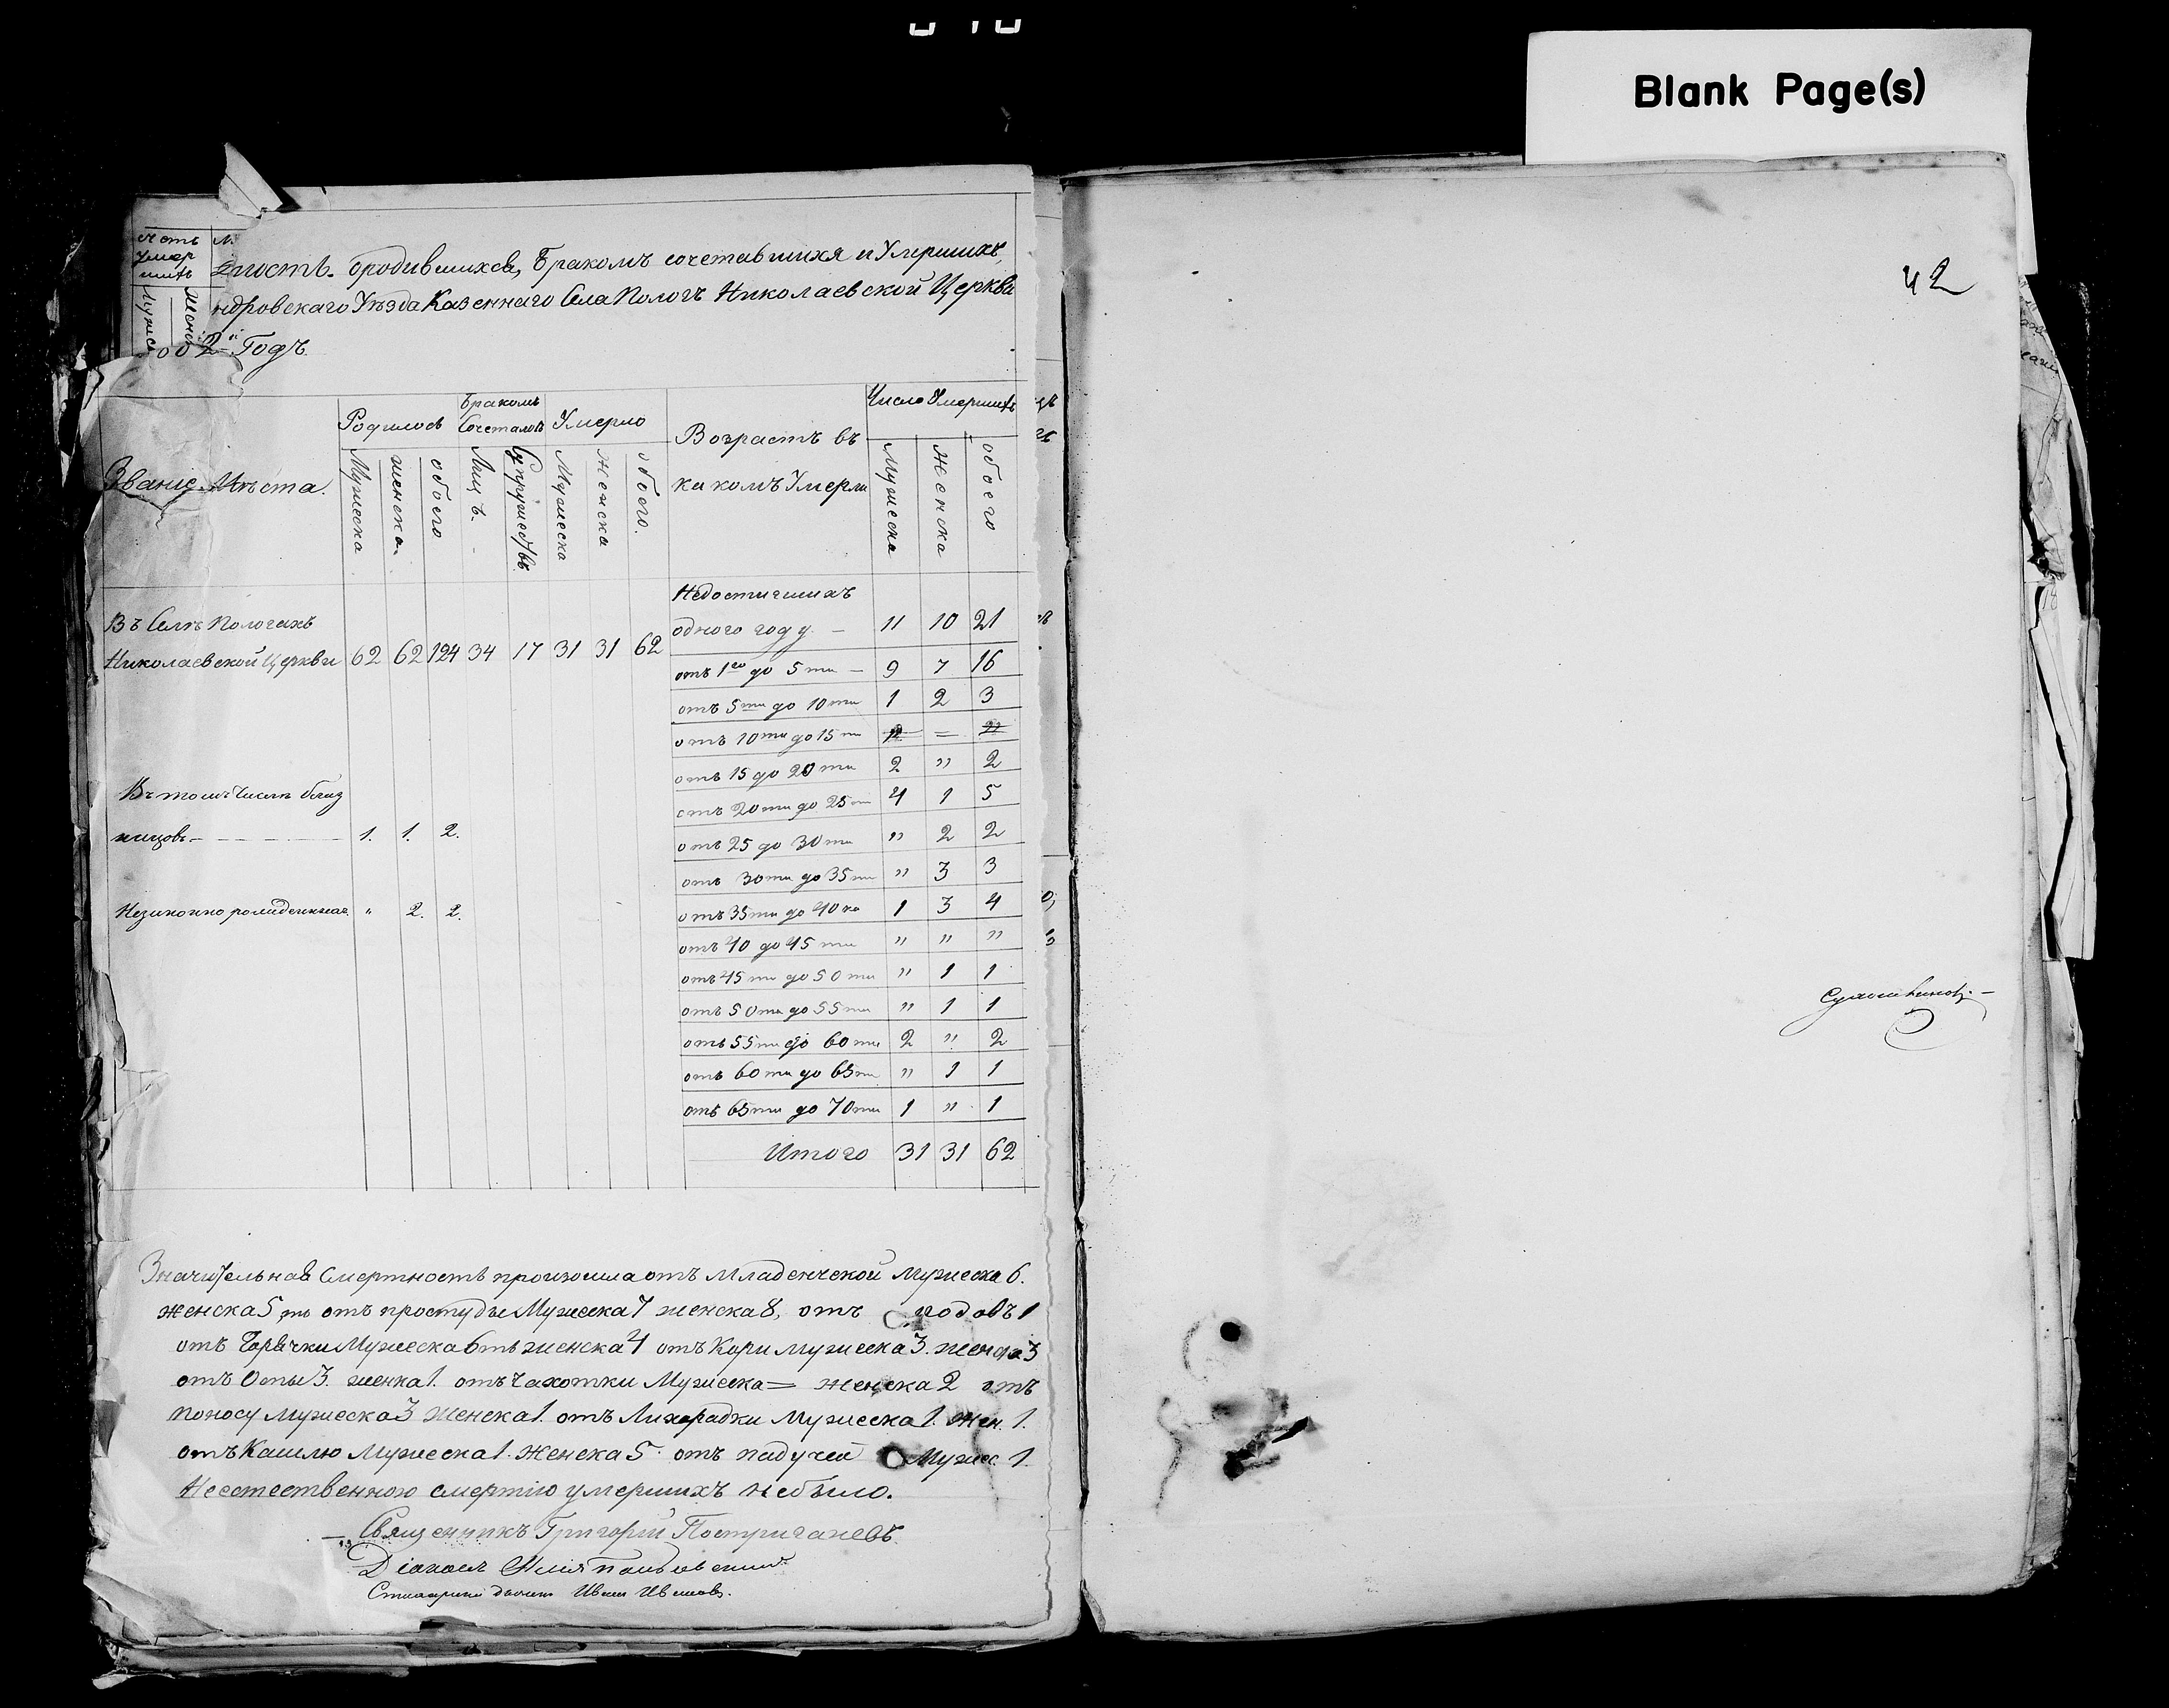 Blank Page(s)
42
Умер
дность. Ородившихся, Бракомъ сочетавшихя и Умершихъ,
ндровскаго Уѣзда Казеннаго Села Пологъ Николаевской Церкви
2й Годъ.
Званіе Мѣста.
Родилось
Мужеска
женска.
обоего
Бракомъ
Сочеталось
Лицъ.
Супружествъ.
Умерло
Мужеска
женска
обоего.
Возрастъ въ
какомъ Умерли
Число Умершихъ
Мужеска
Женска
обоего
Въ Селѣ Пологахъ
Николаевской Церкви 62 62 124 34 17 31 31 62
Въ томъ Числѣ близ
нецовъ — 1. 1. 2.
Незаконно рожденныхъ " 2. 2.
Недостигшихъ
одного году — 11 10 21
отъ 1го до 5ти — 9 7 16
отъ 5ти до 10ти 1 2 3
отъ 10ти до 15ти =
отъ 15 до 20ти 2 " 2
отъ 20ти до 25ти 4 1 5
отъ 25 до 30ти " 2 2
отъ 30ти до 35ти " 3 3
отъ 35ти до 40ка 1 3 4
отъ 40 до 45ти " " "
отъ 45ти до 50ти " 1 1
отъ 50ти до 55ти " 1 1
отъ 55ти до 60ти 2 " 2
отъ 60ти до 65ти " 1 1
отъ 65ти до 70ти 1 " 1
Итого 31 31 62
Значительная Смертность произошла отъ Младенческой Мужеска 6.
женска 5, отъ простуды Мужеска 7 женска 8, отъ родовъ 1
отъ Горячки Мужеска 6ть женска 4 отъ Кори мужеска 3. женска 3
отъ Оспы 3. женка 1. отъ Чахотки Мужеска = женска 2 отъ
поносу Мужеска 3 Женска 1. отъ Лихорадки Мужеска 1. Жен. 1.
отъ Кашлю Мужеска 1. Женска 5. отъ падучей Мужес. 1.
Неестественною смертію умершихъ небыло.
Священникъ Григорій Постригачевъ.
Діаконъ
Иванъ Ивановъ.